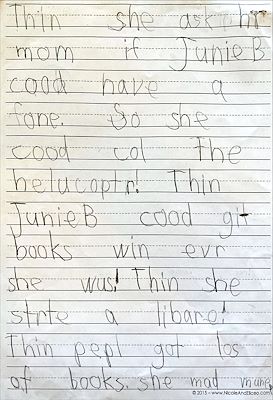 Thin she askt hr
mom if Junie B
cood have a
fone. So she
cood col the
helucoptr! Thin
Junie B cood git
books win evr
she wus! Thin she
strte a libare!
Thin pepl got los
of books. she mad mune
© 2015 - www.NicoleAndEliceo.com